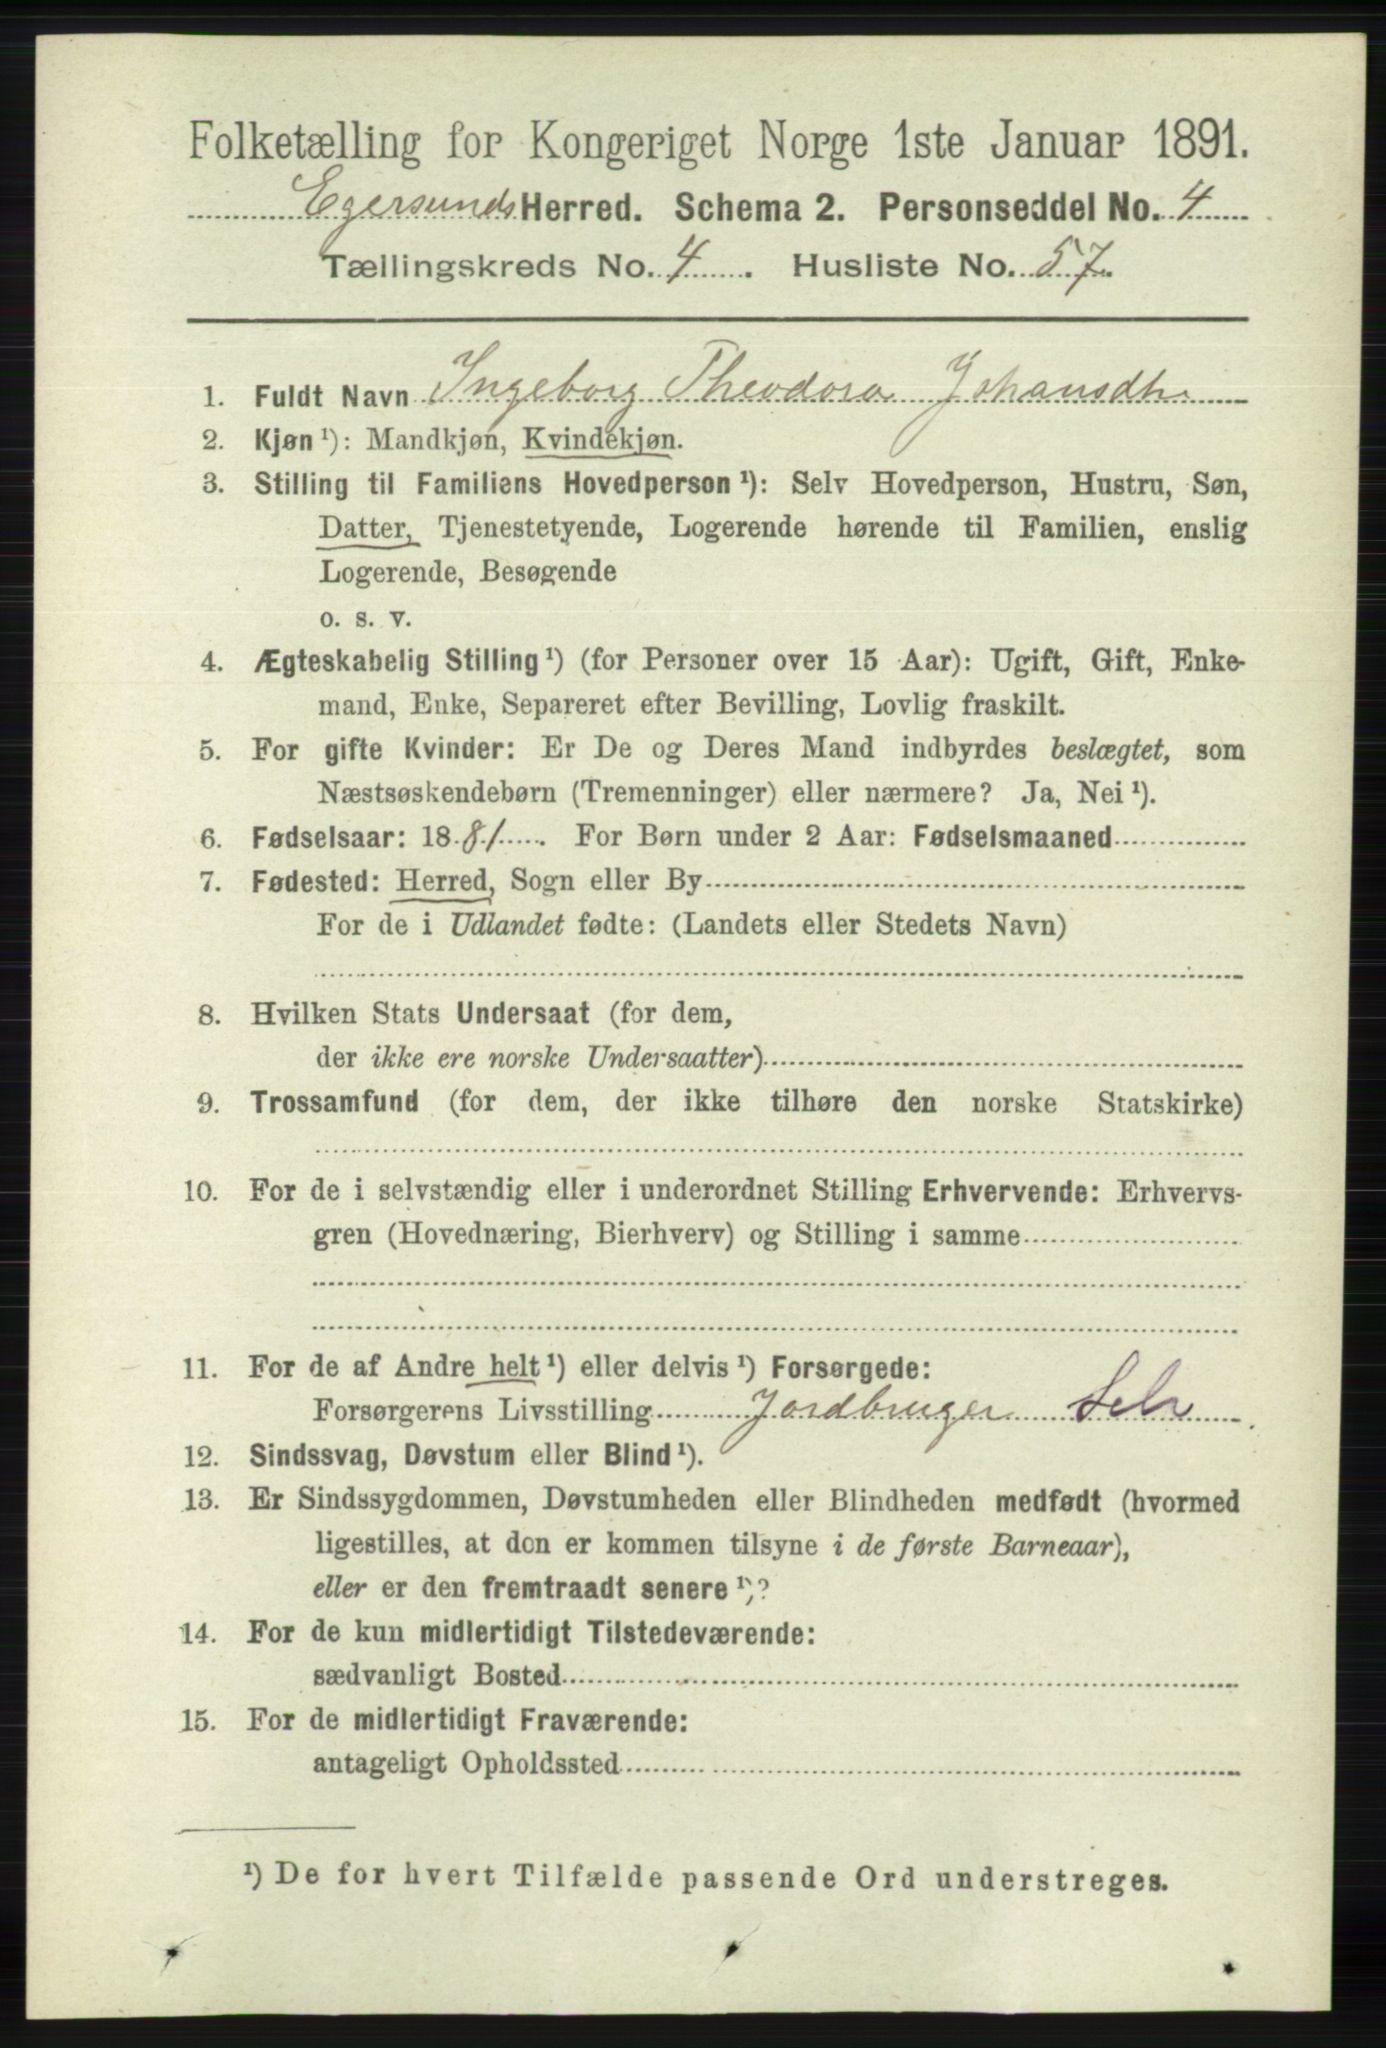 Folketælling for Kongeriget Norge 1ste Januar 1891.
Egersunds Herred. Schema 2. Personseddel No. 4
Tællingskreds No. 4. Husliste No. 57.
1. Fuldt Navn Ingeborg Theodora Johansdtr
2. Kjøn ¹): Mandkjøn, Kvindekjøn.
3. Stilling til Familiens Hovedperson ¹): Selv Hovedperson, Hustru, Søn,
Datter, Tjenestetyende, Logerende hørende til Familien, enslig
Logerende, Besøgende
o. s. v.
4. Ægteskabelig Stilling ¹) (for Personer over 15 Aar): Ugift, Gift, Enke-
mand, Enke, Separeret efter Bevilling, Lovlig fraskilt.
5. For gifte Kvinder: Er De og Deres Mand indbyrdes beslægtet, som
Næstsøskendebørn (Tremenninger) eller nærmere? Ja, Nei ¹).
6. Fødselsaar: 1881. For Børn under 2 Aar: Fødselsmaaned
7. Fødested: Herred, Sogn eller By
For de i Udlandet fødte: (Landets eller Stedets Navn)
8. Hvilken Stats Undersaat (for dem,
der ikke ere norske Undersaatter)
9. Trossamfund (for dem, der ikke tilhøre den norske Statskirke)
10. For de i selvstændig eller i underordnet Stilling Erhvervende: Erhvervs-
gren (Hovednæring, Bierhverv) og Stilling i samme
11. For de af Andre helt ¹) eller delvis ¹) Forsørgede:
Forsørgerens Livsstilling Jordbruger Selv
12. Sindssvag, Døvstum eller Blind ¹).
13. Er Sindssygdommen, Døvstumheden eller Blindheden medfødt (hvormed
ligestilles, at den er kommen tilsyne i de første Barneaar),
eller er den fremtraadt senere ¹)?
14. For de kun midlertidigt Tilstedeværende:
sædvanligt Bosted
15. For de midlertidigt Fraværende:
antageligt Opholdssted
¹) De for hvert Tilfælde passende Ord understreges.